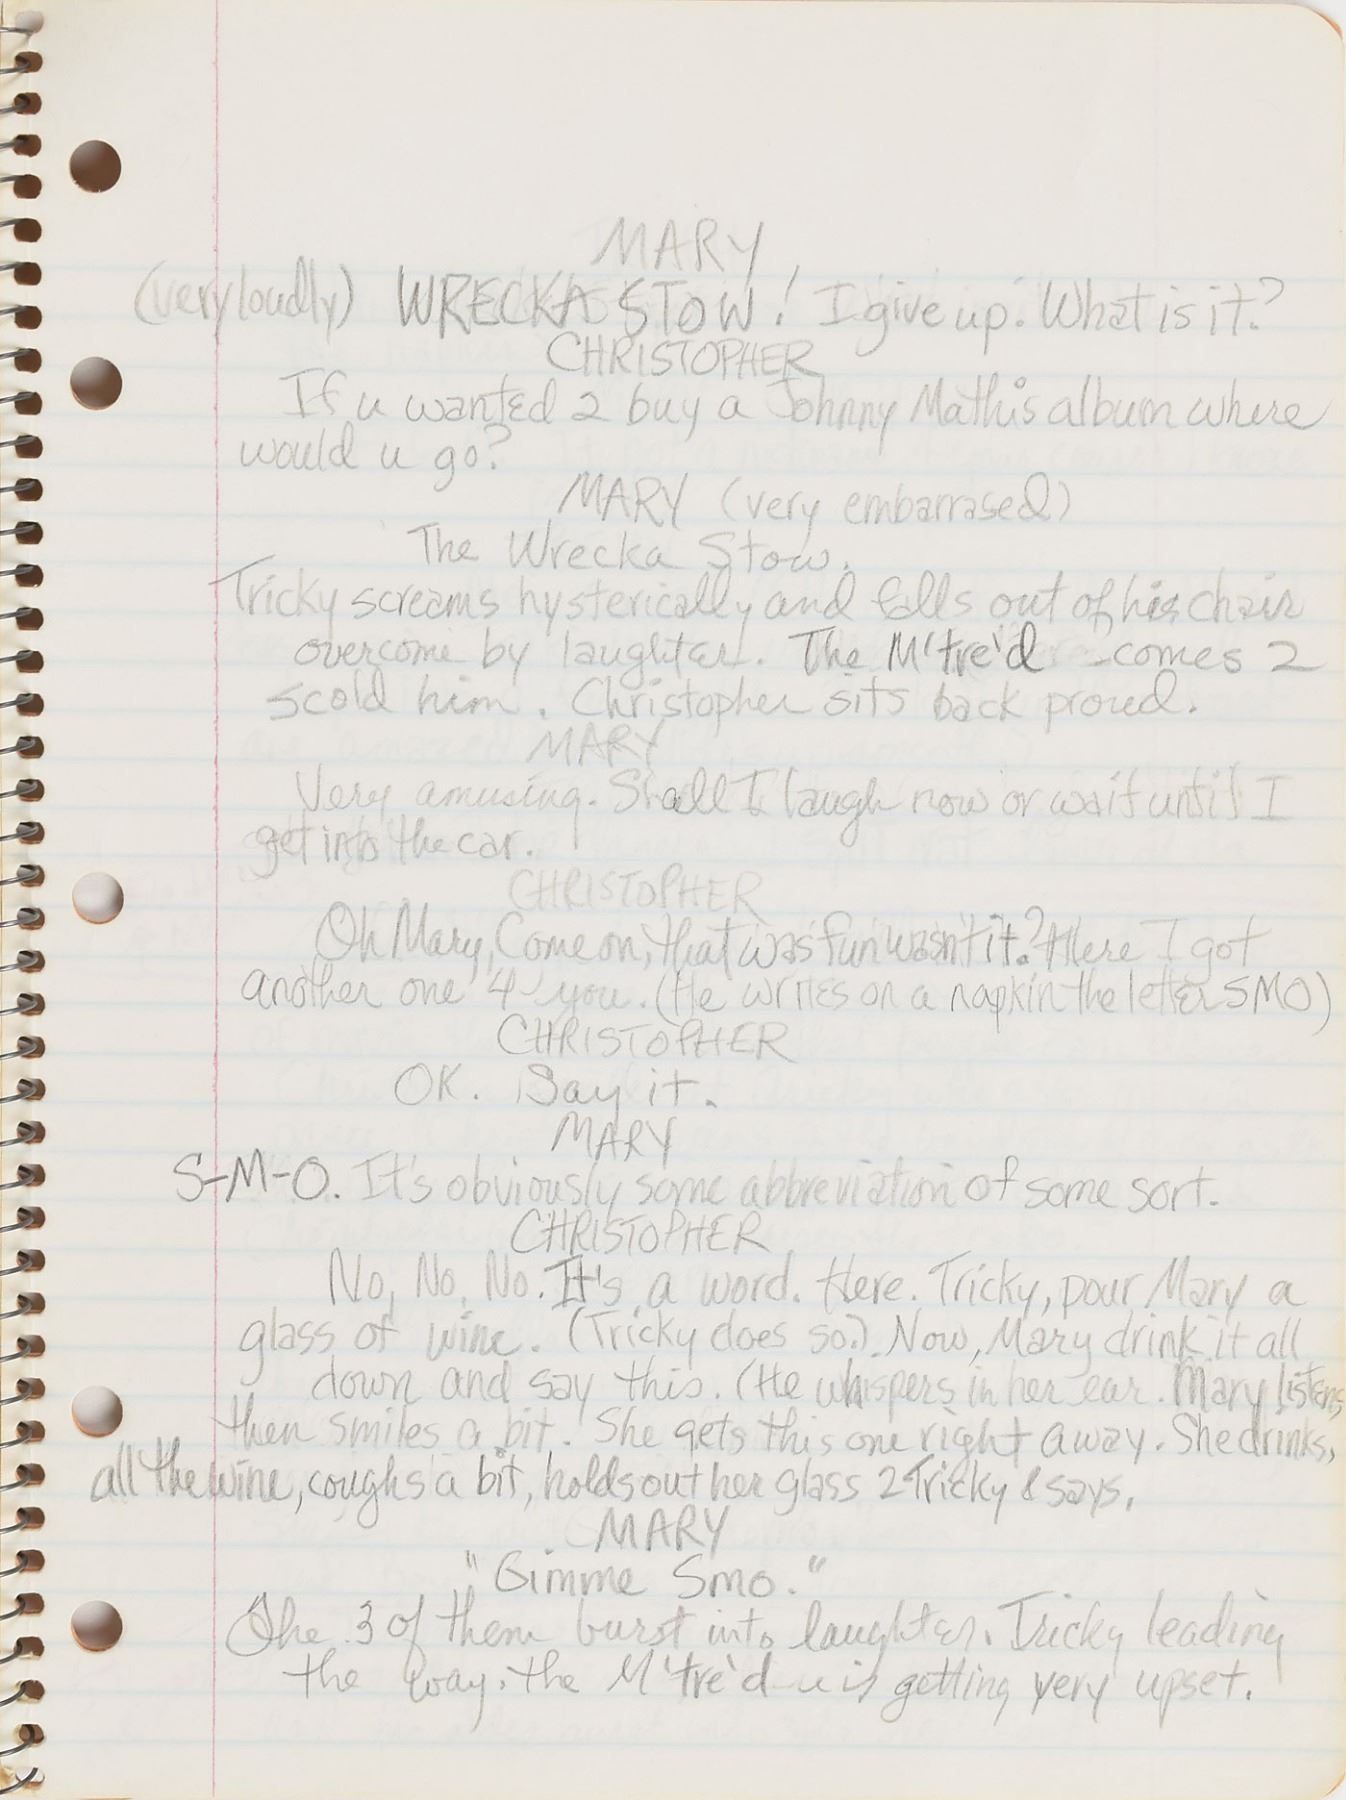 MARY
(very loudly) WRECKA STOW! I give up. What is it?
CHRISTOPHER
If u wanted 2 buy a Johnny Mathis album where
would u go?
MARY (very embarrased)
The Wrecka Stow.
Tricky screams hysterically and falls out of his chair
overcome by laughter. The M'tre'd comes 2
scold him. Christopher sits back proud.
MARY
Very amusing. Shall I laugh now or wait until I
get into the car.
CHRISTOPHER
Oh Mary, Come on, that was fun wasn't it? Here I got
another one 4 you. (He writes on a napkin the letter SMO)
CHRISTOPHER
OK. Say it.
MARY
S-M-O. It's obviously some abbreviation of some sort.
CHRISTOPHER
No, No, No. It's a word. Here. Tricky, pour Mary a
glass of wine. (Tricky does so.) Now, Mary drink it all
down and say this. (He whispers in her ear. Mary listens,
then smiles a bit. She gets this one right away. She drinks,
all the wine, coughs a bit, holds out her glass 2 Tricky & says,
MARY
"Gimme Smo."
The 3 of them burst into laughter. Tricky leading
the way. the M'tre'd is getting very upset.